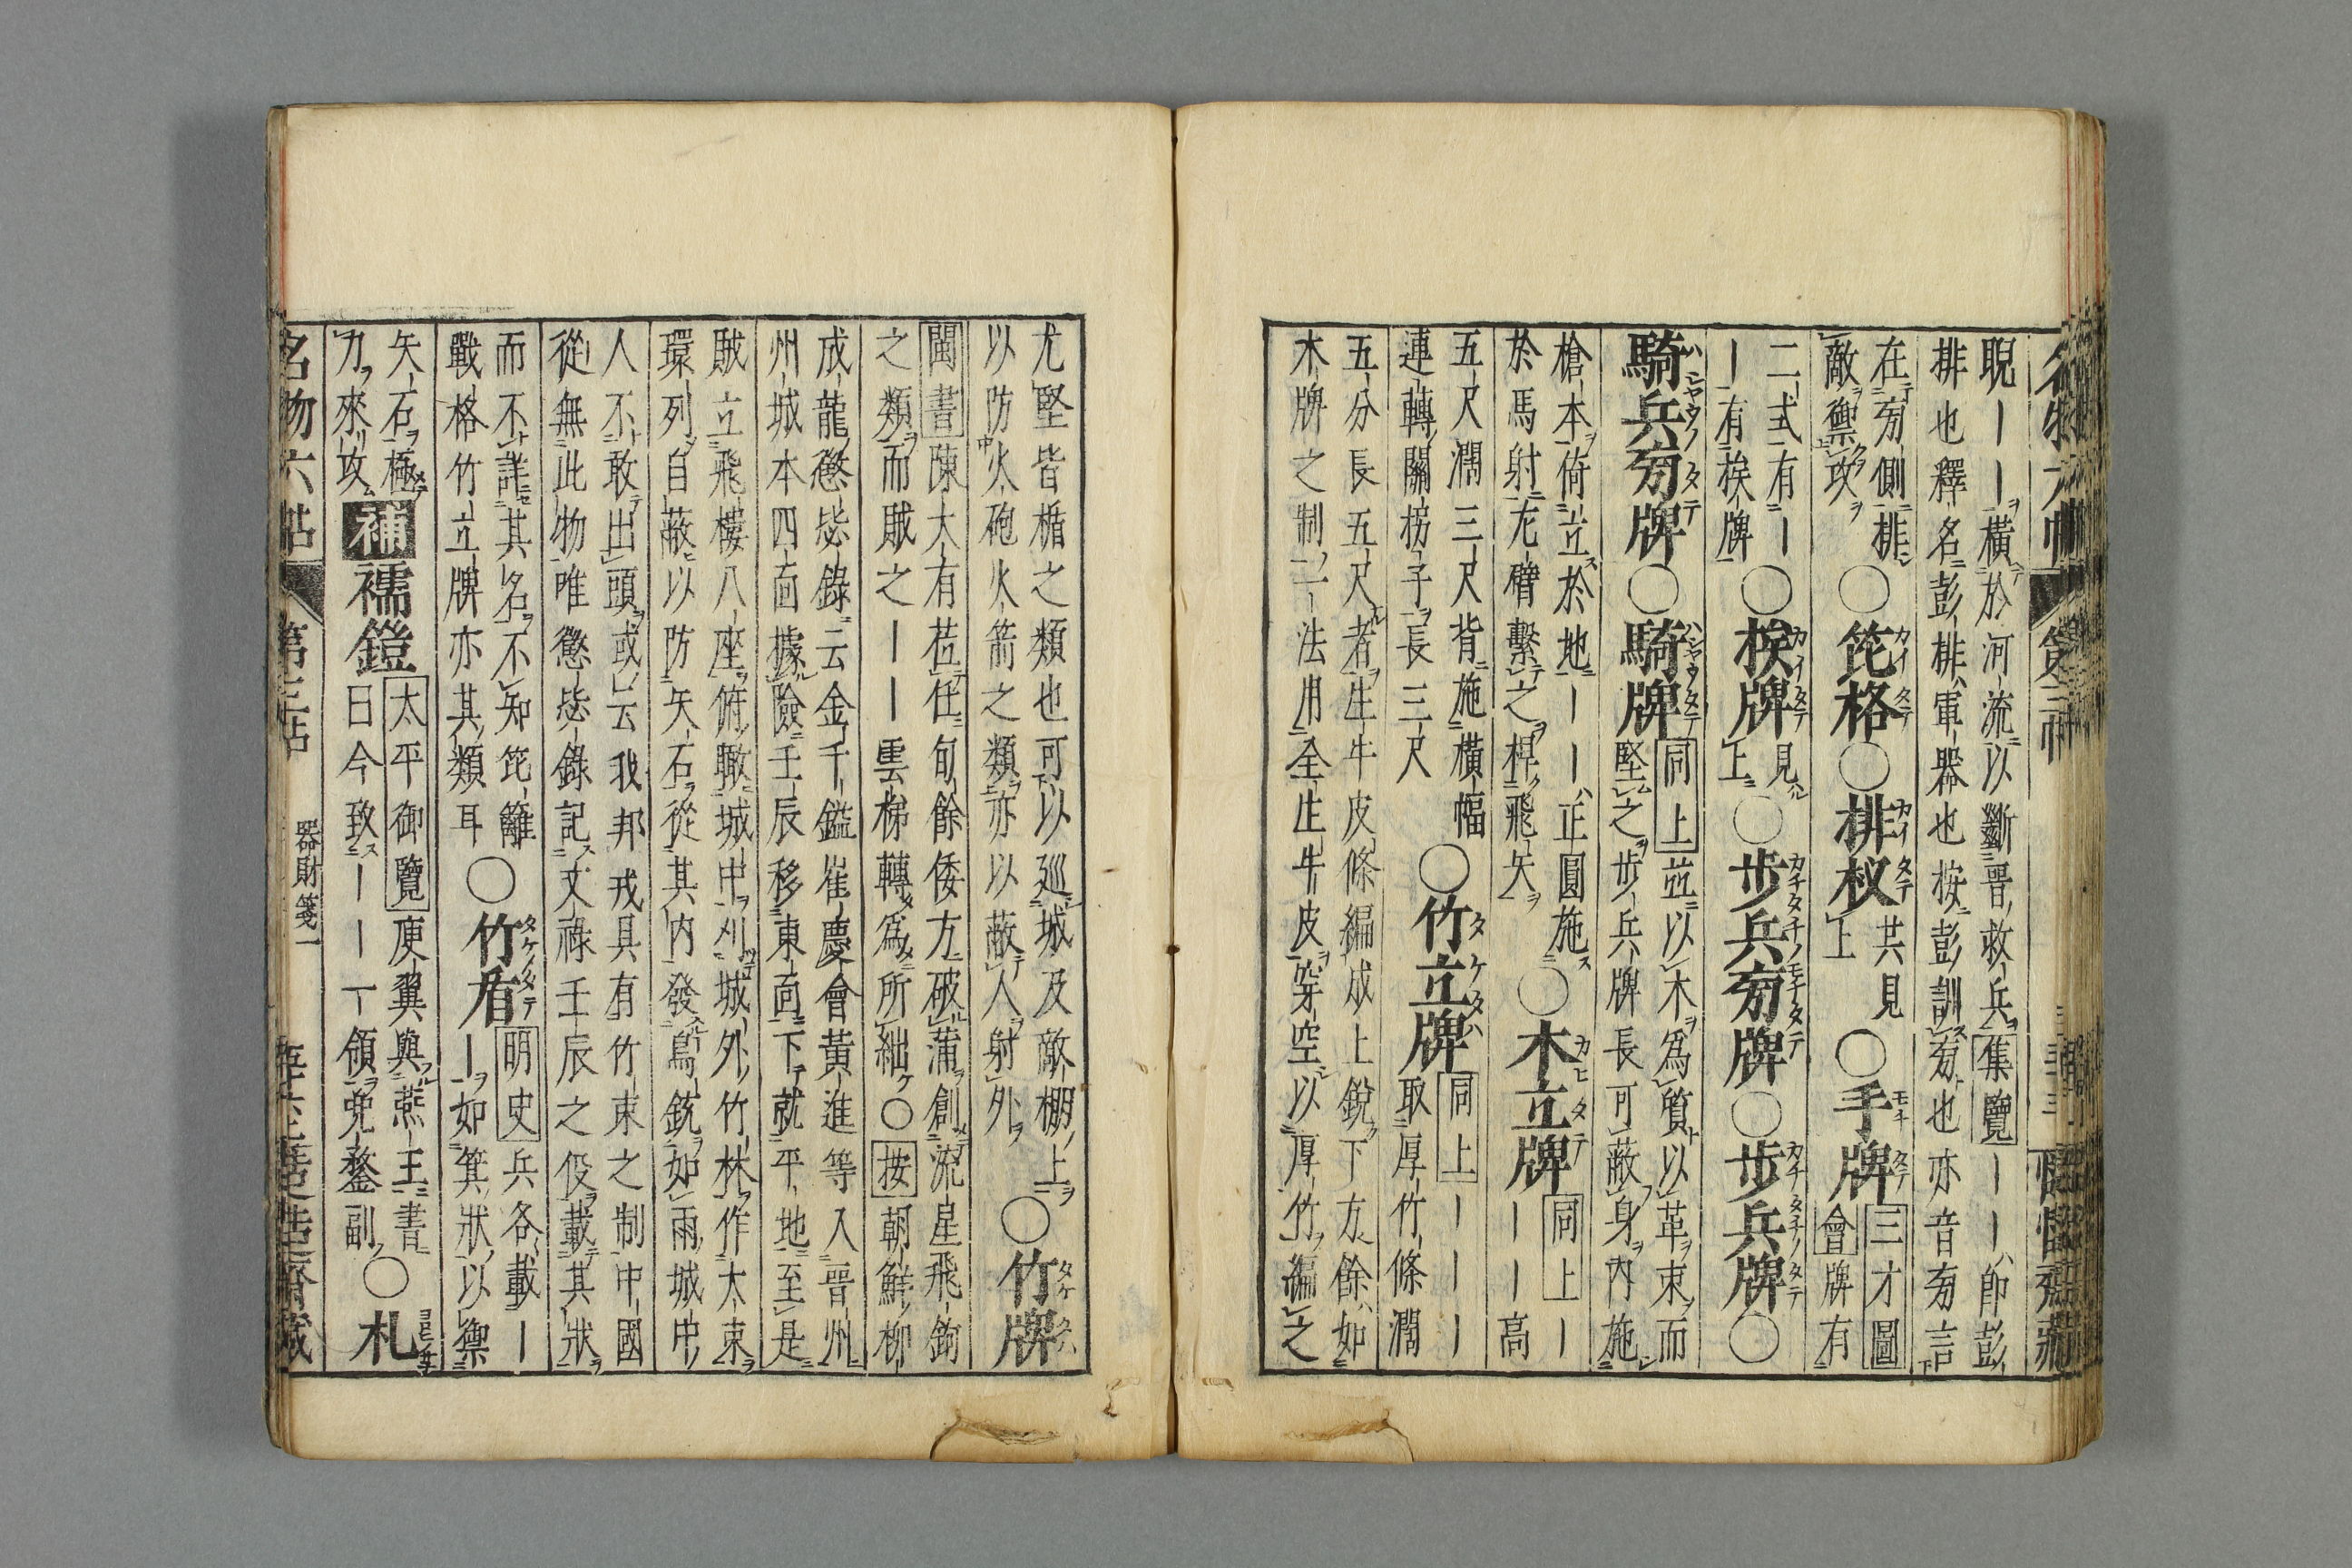 名物六帖 第三帖
睨――横於河流以斷晋救兵集覽――即彭
排也釋名彭排軍器也按彭訓旁也亦音旁言
在旁側排
敵禦攻
〇笓格〇排杈
共見
上
〇手牌
三才圖
會牌有
二式有―
―有挨牌
〇挨牌
見
上
〇步兵旁牌〇步兵牌〇
騎兵旁牌〇騎牌
同上並以木爲質以革束而
堅之步兵牌長可蔽身内施
槍本倚立於地―――正圓施
於馬射左臂繫之捍飛矢
〇木立牌
同上―
―――高
五尺濶三尺背施横幅
連轉關柺子長三尺
〇竹立牌
同上―――
取厚竹條濶
五分長五尺者生牛皮條編成上銳下方餘如
木牌之制一法用全生牛皮穿空以厚竹編之
尤堅皆楯之類也可以廵城及敵棚上
以防火砲火箭之類亦以蔽人射外
〇竹牌
閩書陳大有莅任旬餘倭方破蒲創流星飛鉤
之類而賊之――雲梯轉爲所絀〇按朝鮮柳
成龍懲毖錄云金千鎰崔慶會黃進等入晋州
州城本四面據險壬辰移東面下就平地至是
賊立飛樓八座俯瞰城中刈城外竹林作大束
環列自蔽以防矢石從其内發鳥銃如雨城中
人不敢出頭或云我邦戎具有竹束之制中國
從無此物唯懲毖錄記文祿壬辰之役載其狀
而不詳其名不知笓籬
戰格竹立牌亦其類耳
〇竹盾
明史兵各載―
―如箕狀以禦
矢石極
力來攻
補
襦鐙
太平御覽庾翼與燕王書
日今致―――丁領兜鍪副
〇札
名物六帖 第三帖 器財箋一